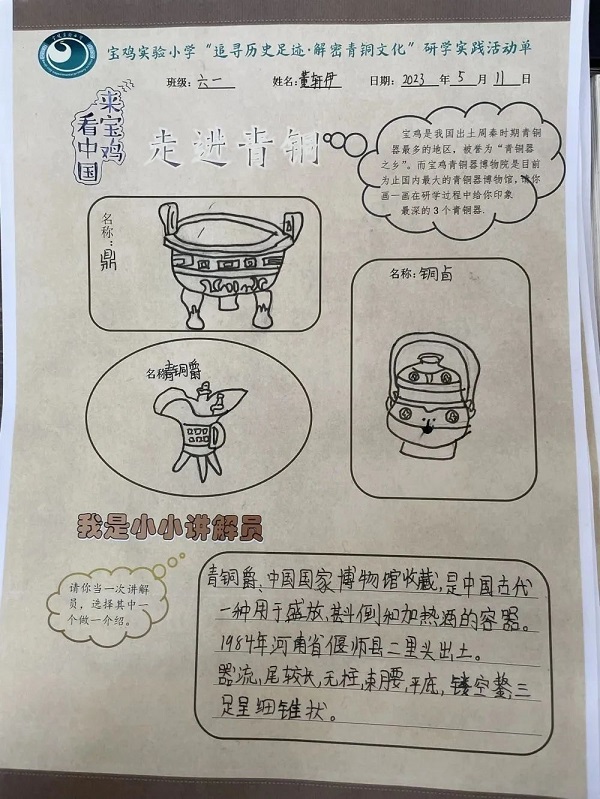 宝鸡实验小学“追寻历史足迹·解密青铜文化”研学实践活动单
班级：六一 姓名：董轩伊 日期：2023 年 5 月 11 日
来宝鸡
看中国
走进青铜
宝鸡是我国出土周秦时期青铜
器最多的地区，被誉为“青铜器
之乡”。而宝鸡青铜器博物院是目前
为止国内最大的青铜器博物馆，请你
画一画在研学过程中给你印象
最深的3个青铜器.
名称：鼎
名称：铜卣
名称青铜爵
我是小小讲解员
请你当一次讲解
员，选择其中一
个做一介绍。
青铜爵、中国国家博物馆收藏，是中国古代
一种用于盛放、斟倒和加热酒的容器。
1984年河南省偃师县二里头出土。
器流，尾较长，无柱，束腰，平底，镂空鋬，三
足呈细锥状。